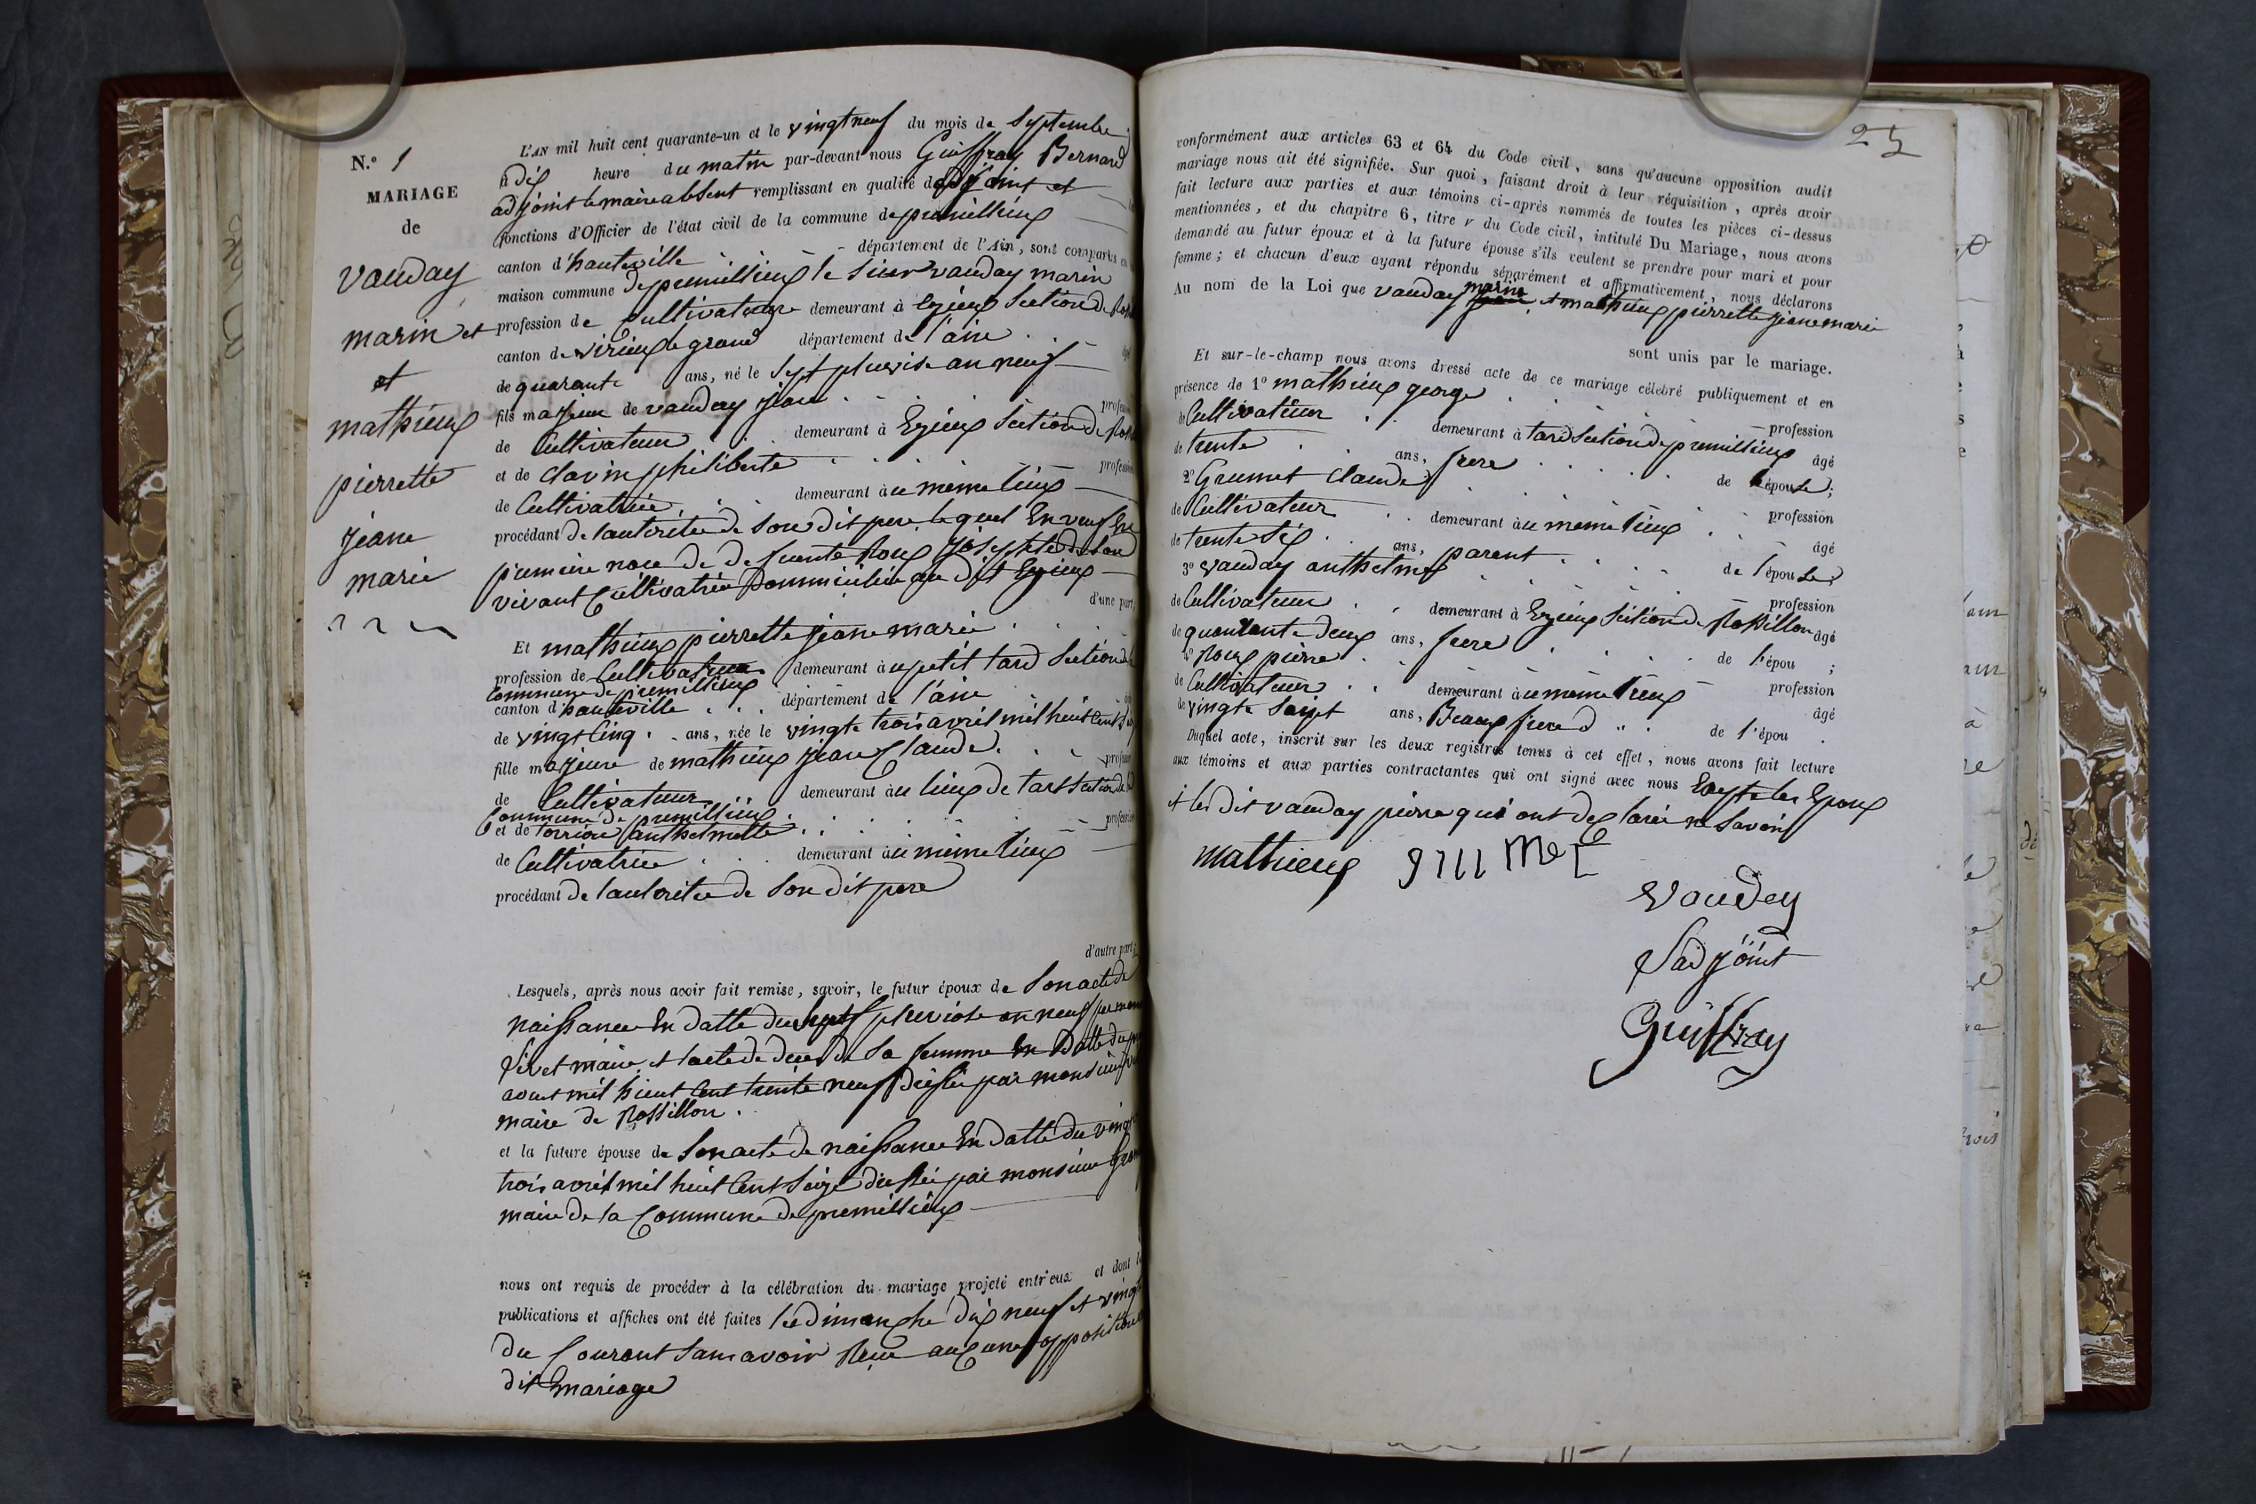 N.º 1
MARIAGE
de
vauday
marin et
et
mathieux
pierrette
jeane
marie
L'AN mil huit cent quarante-un et le vingt neuf du mois de Septembre
à dix heure du matin par-devant nous Guiffray Bernard
adjoint le maire absent remplissant en qualité d'adjoint et
fonctions d'Officier de l'état civil de la commune de premillieux
canton d'hauteville département de l'Ain, sont comparus en
maison commune de premillieux le sieur vauday marin
profession de Cultivateur demeurant à Ezieux Section de
canton de virieux le grand département de l'ain
de quarante ans, né le sept pluviose an neuf
fils majeur de vauday jean
de Cultivateur demeurant à Ezieux Section de
et de clavin philiberte
de Cultivatrice demeurant au meme lieux
procédant de lautoritée de son dit pere lequel En veuf En
premiere noce de defuente Roux josephte de son
vivant Cultivatrice Dommiciliée au dit Ezieux
d'une part;
Et mathieux pierrette jeane marie
profession de Cultivatrice demeurant au petit tard Section de
Commune de premillieux
canton d'hauteville département de l'ain
de vingt Cinq ans, née le vingt trois avril mil huit Cent
fille majeure de mathieux jean Claude
de Cultivateur demeurant au lieux de tard Section de
Commune de premillieux
et de torrion anthelmette
de Cultivatrice demeurant au meme lieux
procédant de lautoritée de son dit pere
d'autre part;
Lesquels, après nous avoir fait remise, savoir, le futur époux de Son acte de
naissance En datte du sept pluviose an neuf par
Sivet maire et lacte de deces de Sa femme En Datte du
aout mil huit Cent trente neuf déslié par monsieur
maire de Rossillon.
et la future épouse de Son acte de naissance En datte du vingt
trois avril mil huit Cent Seize déslié par monsieur
maire de la Commune de premillieux
nous ont requis de procéder à la célébration du mariage projeté entr'eux et dont
publications et affiches ont été faites les dimanche dix neuf et vingt
du Courant Sans avoir Reçue aucune opposition
dit Mariage
25
conformément aux articles 63 et 64 du Code civil, sans qu'aucune opposition audit
mariage nous ait été signifiée. Sur quoi, faisant droit à leur réquisition, après avoir
fait lecture aux parties et aux témoins ci-après nommés de toutes les pièces ci-dessus
mentionnées, et du chapitre 6, titre v du Code civil, intitulé Du Mariage, nous avons
demandé au futur époux et à la future épouse s'ils veulent se prendre pour mari et pour
femme; et chacun d'eux ayant répondu séparément et affirmativement, nous déclarons
Au nom de la Loi que vauday marin et mathieux pierrette jeane marie
sont unis par le mariage.
Et sur-le-champ nous avons dressé acte de ce mariage célébré publiquement et en
présence de 1º mathieux george profession
de Cultivateur demeurant à tard Section de premillieux âgé
de trente ans, frere de l'épouse;
2º Grumet Claude profession
de Cultivateur demeurant au meme lieux âgé
de trente Six ans, parent de l'épouse
3º vauday anthelme profession
de Cultivateur demeurant à Ezieux Section de Rossillon âgé
de quarante deux ans, frere de l'épou ;
4º Roux pierre profession
de Cultivateur demeurant au meme lieux âgé
de vingt Sept ans, Beaux frere de l'épou
Duquel acte, inscrit sur les deux registres tenus à cet effet, nous avons fait lecture
aux témoins et aux parties contractantes qui ont signé avec nous Exsepte les Epoux
et les dit vauday pierre qui ont declarée ne Savoir
mathieux
Vauday
Ladjoint
Guiffray